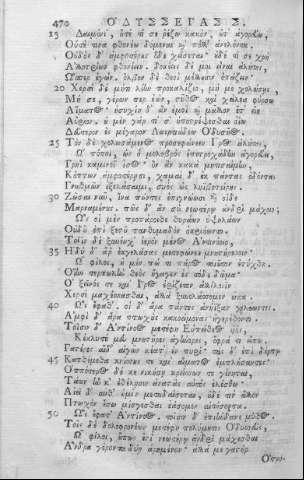 470 ΟΔΥΣΣΕΙΑΣ Σ.
15 Δαιμόνι', οὔτέ τί σε ῥέζω κακὸν, οὔτ' ἀγορεύω,
Οὔτέ τινα φθονέω δόμεναι καὶ πόλλ' ἀνελόντα.
Οὐδὸς δ' ἀμφοτέρους ὅδε χείσεται· οὐδέ τί σε χρὴ
Ἀλλοτρίων φθονέειν· δοκέεις δέ μοι εἶναι ἀλήτης,
Ὥσπερ ἐγών, ὄλβον δὲ θεοὶ μέλλουσιν ὀπάζειν.
20 Χερσὶ δὲ μή τι λίην προκαλίζεο, μή με χολώσῃς,
Μή σε, γέρων περ ἐὼν, στῆθος καὶ χείλεα φύρσω
Αἵματος· ἡσυχίη δ' ἂν ἐμοὶ καὶ μᾶλλον ἔτ' εἴη
Αὔριον. οὐ μὲν γάρ τί σ' ὑποστρέψεσθαι ὀΐω
Δεύτερον ἐς μέγαρον Λαερτιάδεω Ὀδυσῆος.
25 Τὸν δὲ χολωσάμενος προσεφώνεεν Ἶρος ἀλήτης,
Ὢ πόποι, ὡς ὁ μολοβρὸς ἐπιτροχάδην ἀγορεύει,
Γρηῒ καμινοῖ ἶσος· ὃν ἂν κακὰ μητισαίμην,
Κόπτων ἀμφοτέρῃσι, χαμαὶ δέ κε πάντας ὀδόντας
Γναθμῶν ἐξελάσαιμι, συὸς ὣς ληϊβοτείρης.
30 Ζῶσαι νῦν, ἵνα πάντες ἐπιγνώωσι καὶ οἵδε
Μαρναμένους· πῶς δ' ἂν σὺ νεωτέρῳ ἀνδρὶ μάχοιο;
Ὣς οἱ μὲν προπάροιθε θυράων ὑψηλάων
Οὐδοῦ ἔπι ξεστοῦ πανθυμαδὸν ὀκριόωντο.
Τοῖϊν δὲ ξυνέηχ' ἱερὸν μένος Ἀντινόοιο,
35 Ἡδὺ δ' ἄρ' ἐκγελάσας μετεφώνει μνηστήρεσσιν·
Ὦ φίλοι, οὐ μέν πώ τι πάρος τοιοῦτον ἐτύχθη,
Οἵην τερπωλὴν θεὸς ἤγαγεν ἐς τόδε δῶμα·
Ὁ ξεῖνός τε καὶ Ἶρος ἐρίζετον ἀλλήλοιϊν
Χερσὶ μαχέσσασθαι, ἀλλὰ ξυνελάσσομεν ὦκα.
40 Ὣς ἔφαθ'· οἱ δ' ἄρα πάντες ἀνήϊξαν γελόωντες·
Ἀμφὶ δ' ἄρα πτωχοὺς κακοείμονας ἠγερέθοντο.
Τοῖσιν δ' Ἀντίνοος μετέφη Εὐπείθεος υἱός,
Κέκλυτέ μευ μνηστῆρες ἀγήνορες, ὄφρα τι εἴπω,
Γαστέρες αἵδ' αἰγῶν κέατ' ἐν πυρὶ· τὰς δ' ἐπὶ δόρπῳ
45 Κατθέμεθα κνίσσης τε καὶ αἵματος ἐμπλήσαντες.
Ὁππότερος δέ κε νικήσῃ κρείσσων τε γένηται,
Τάων ἥν κ' ἐθέλῃσιν ἀναστὰς αὐτὸς ἑλέσθω·
Αἰεὶ δ' αὖθ' ἡμῖν μεταδαίσεται, οὐδέ τιν' ἄλλον
Πτωχὸν ἔσω μίσγεσθαι ἐάσομεν αἰτήσοντα.
50 Ὣς ἔφατ' Ἀντίνοος, τοῖσιν δ' ἐπιήνδανε μῦθος.
Τοῖς δὲ δολοφρονέων μετέφη πολύμητις Ὀδυσσεύς,
Ὦ φίλοι, οὔπως ἔστι νεωτέρῳ ἀνδρὶ μάχεσθαι
Ἄνδρα γέροντα δύῃ ἀρημένον· ἀλλά με γαστὴρ
Ὀτρύ-